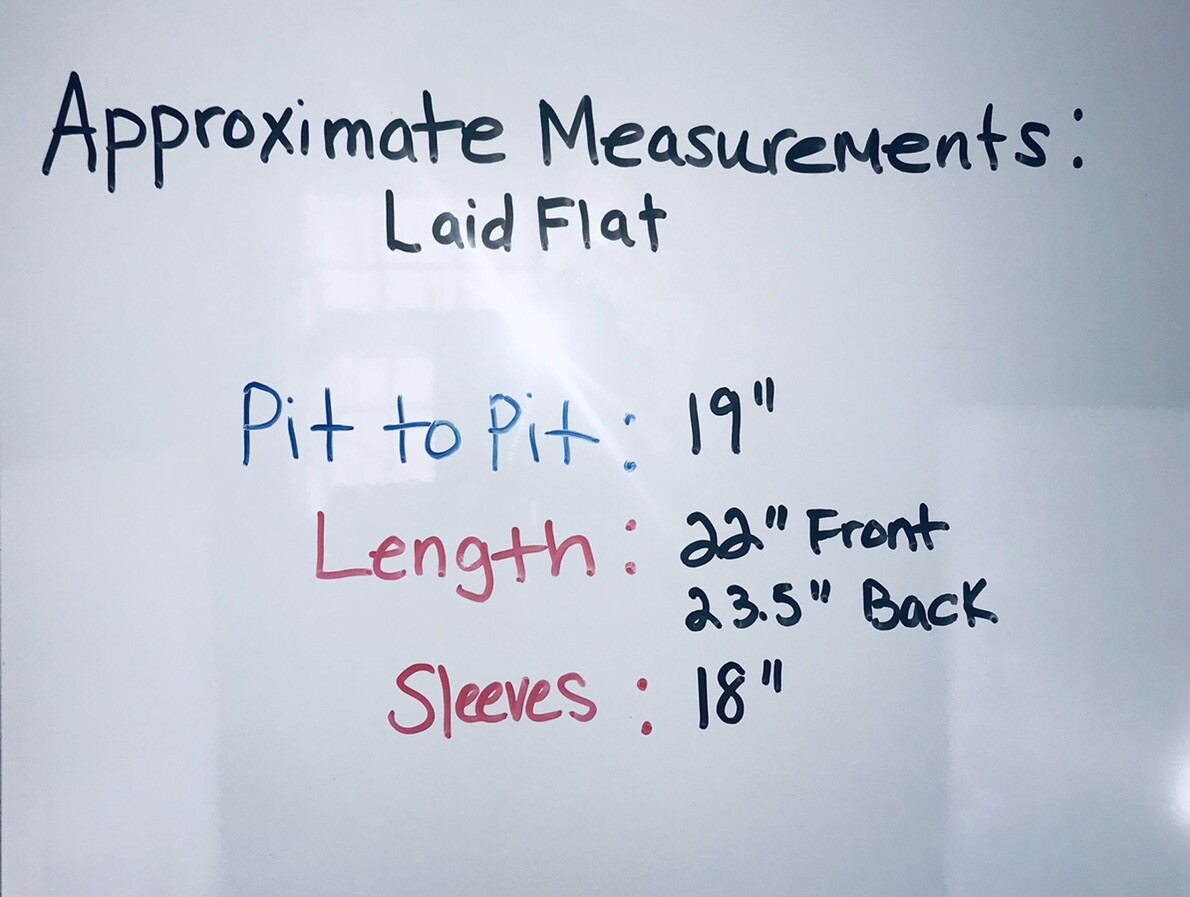 Approximate Measurements:
Laid Flat
Pit to Pit: 19"
Length: 22" Front
23.5" Back
Sleeves: 18"